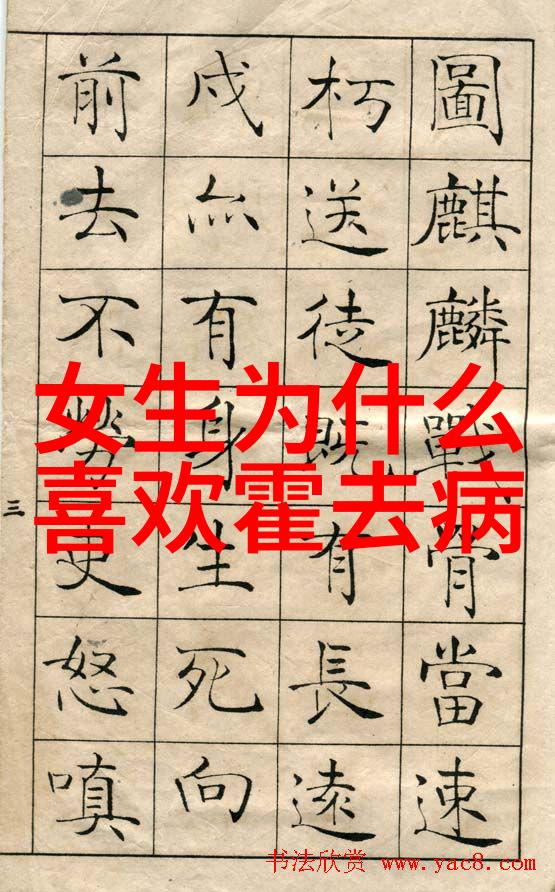 圖麒麟戰骨當速
朽送徒既有長遠
戍亦有身生死向
前去不勞吏怒嗔
三
女生为什么
喜欢霍去病
书法欣赏 www.yac8.com